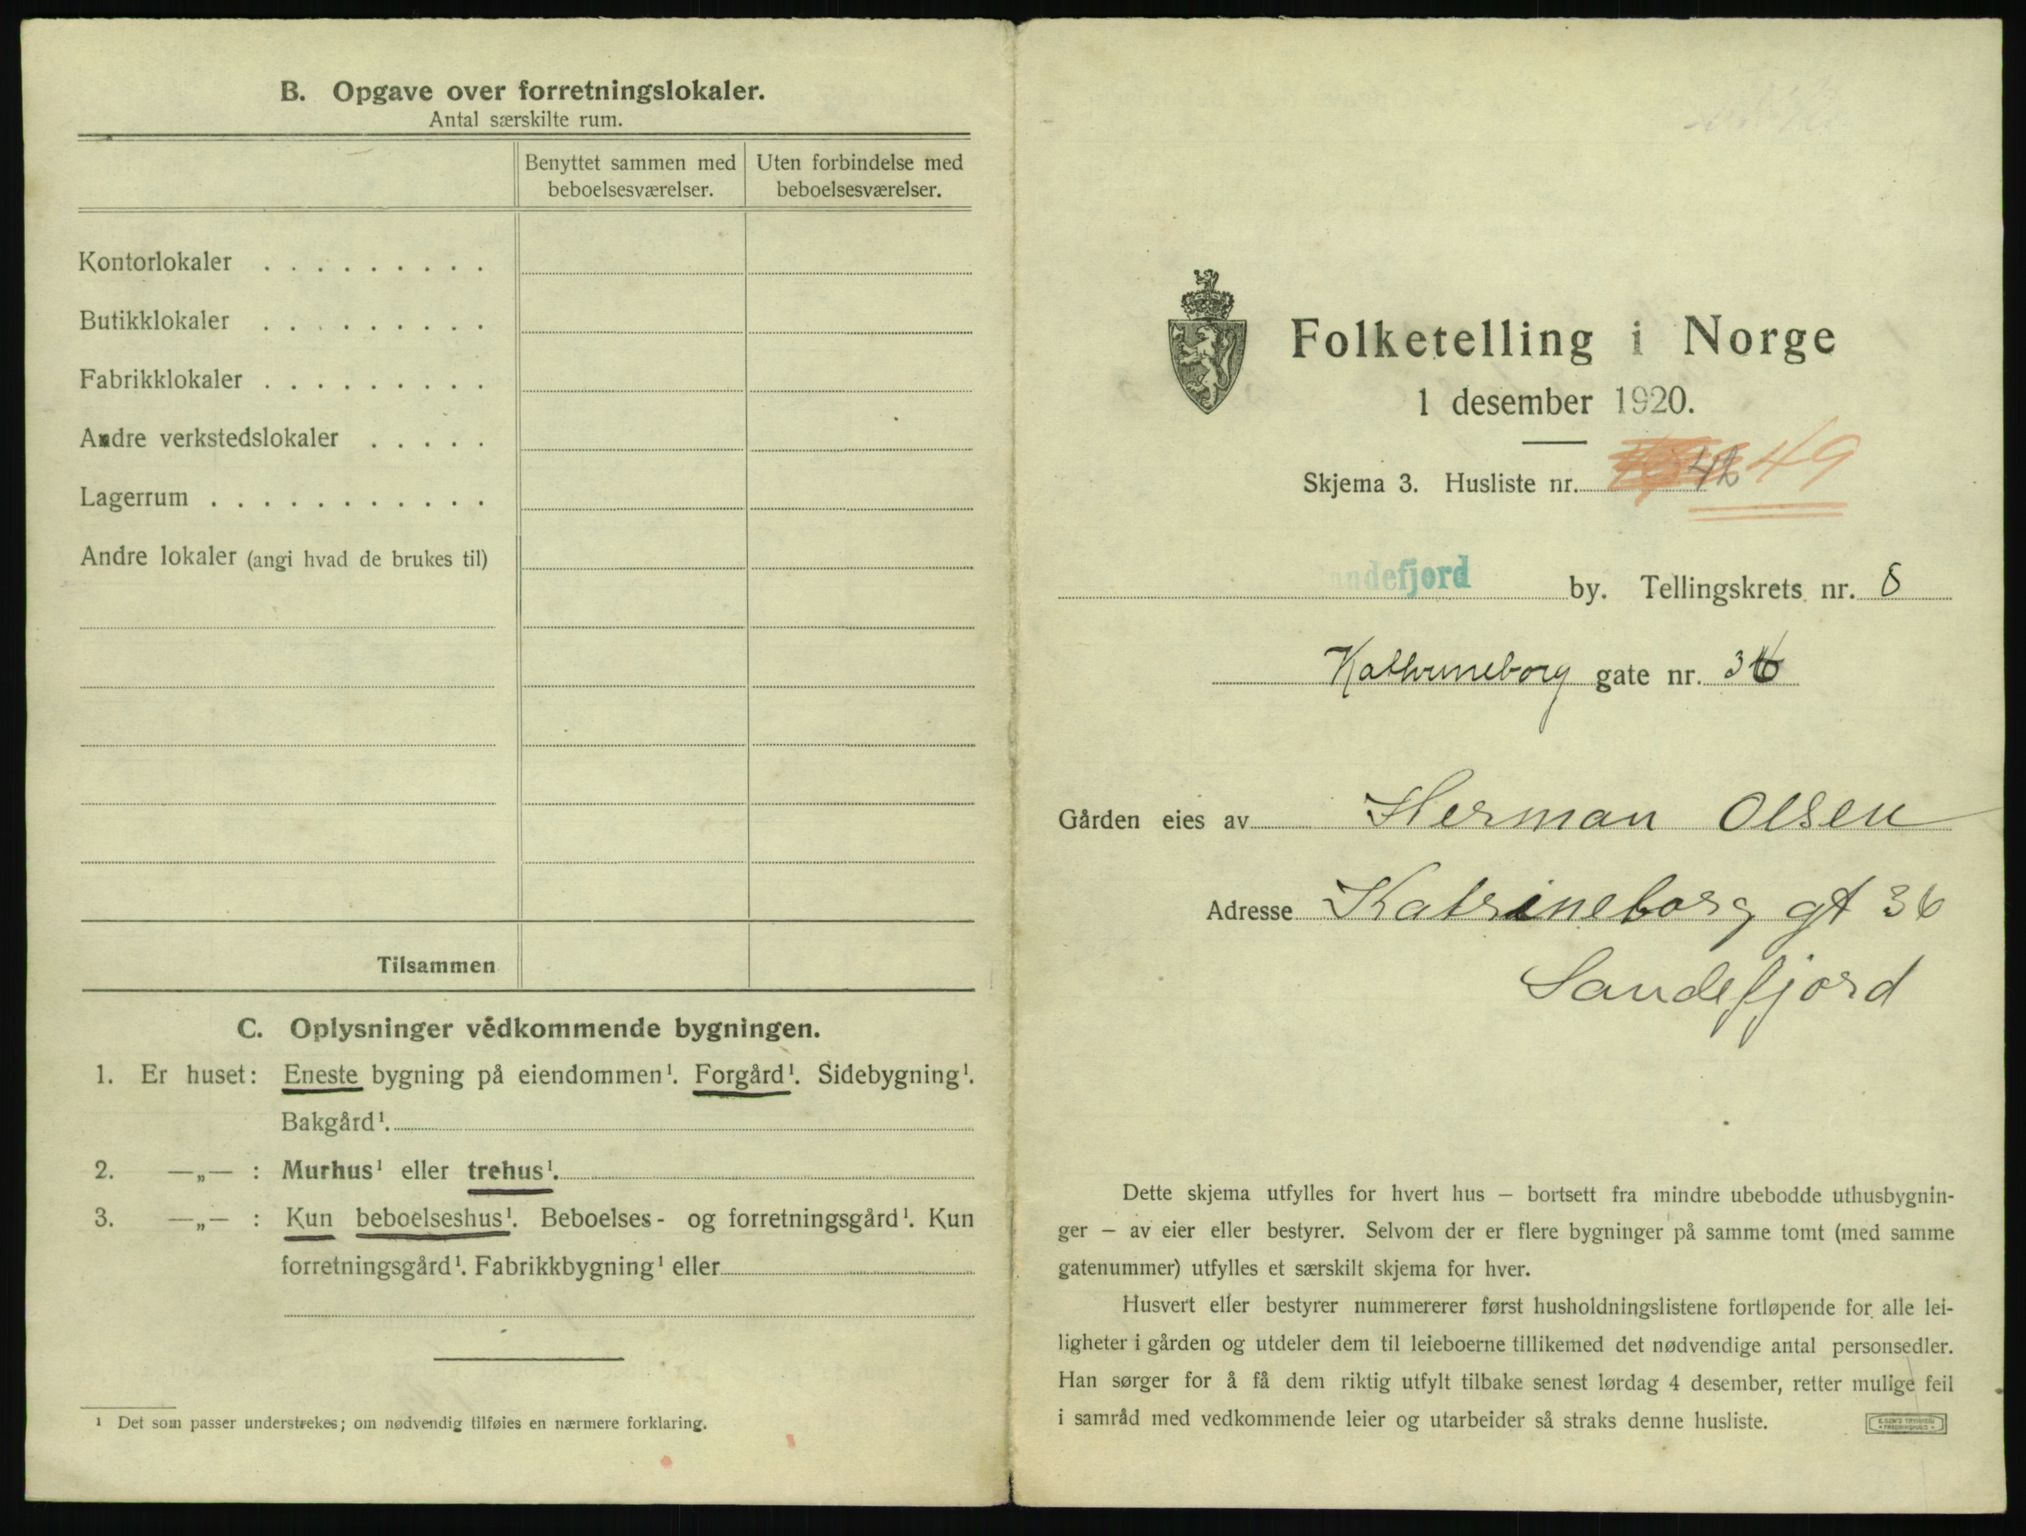 B. Opgave over forretningslokaler.
Antal særskilte rum.
Benyttet sammen med
beboelsesværelser.
Uten forbindelse med
beboelsesværelser.
Kontorlokaler . . . . . . . . .
Butikklokaler . . . . . . . . .
Fabrikklokaler . . . . . . . . .
Andre verkstedslokaler . . . . .
Lagerrum . . . . . . . . . . .
Andre lokaler (angi hvad de brukes til)
Tilsammen
C. Oplysninger vedkommende bygningen.
1. Er huset: Eneste bygning på eiendommen¹. Forgård¹. Sidebygning¹.
Bakgård¹.
2. —„— : Murhus¹ eller trehus¹.
3. —„— : Kun beboelseshus¹. Beboelses- og forretningsgård¹. Kun
forretningsgård¹. Fabrikkbygning¹ eller
¹ Det som passer understrekes; om nødvendig tilføies en nærmere forklaring.
Folketelling i Norge
1 desember 1920.
Skjema 3. Husliste nr. 49
andefjord by. Tellingskrets nr. 8
Kathrineborg gate nr. 36
Gården eies av Herman Olsen
Adresse Katrineborg gt 36
Sandefjord
Dette skjema utfylles for hvert hus – bortsett fra mindre ubebodde uthusbygnin-
ger – av eier eller bestyrer. Selvom der er flere bygninger på samme tomt (med samme
gatenummer) utfylles et særskilt skjema for hver.
Husvert eller bestyrer nummererer først husholdningslistene fortløpende for alle lei-
ligheter i gården og utdeler dem til leieboerne tillikemed det nødvendige antal personsedler.
Han sørger for å få dem riktig utfylt tilbake senest lørdag 4 desember, retter mulige feil
i samråd med vedkommende leier og utarbeider så straks denne husliste.